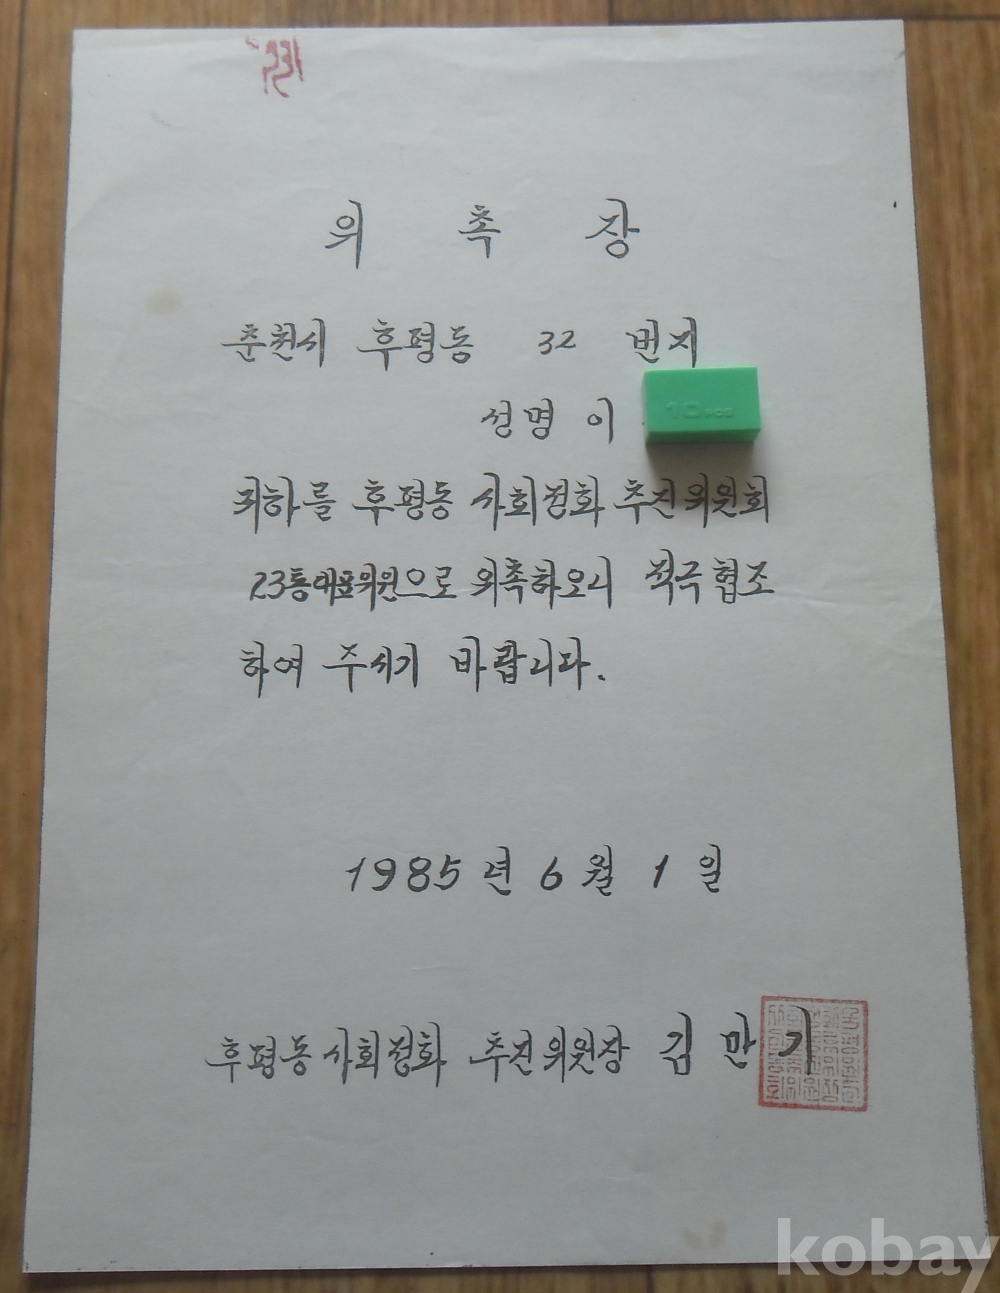 위 촉 장
춘천시 후평동 32 번지
성명 이
귀하를 후평동 사회정화 추진위원회
23통대표위원으로 위촉하오니 적극협조
하여 주시기 바랍니다.
1985년 6월 1일
후평동사회정화 추진위원장 김만기
10 PCS
kobay